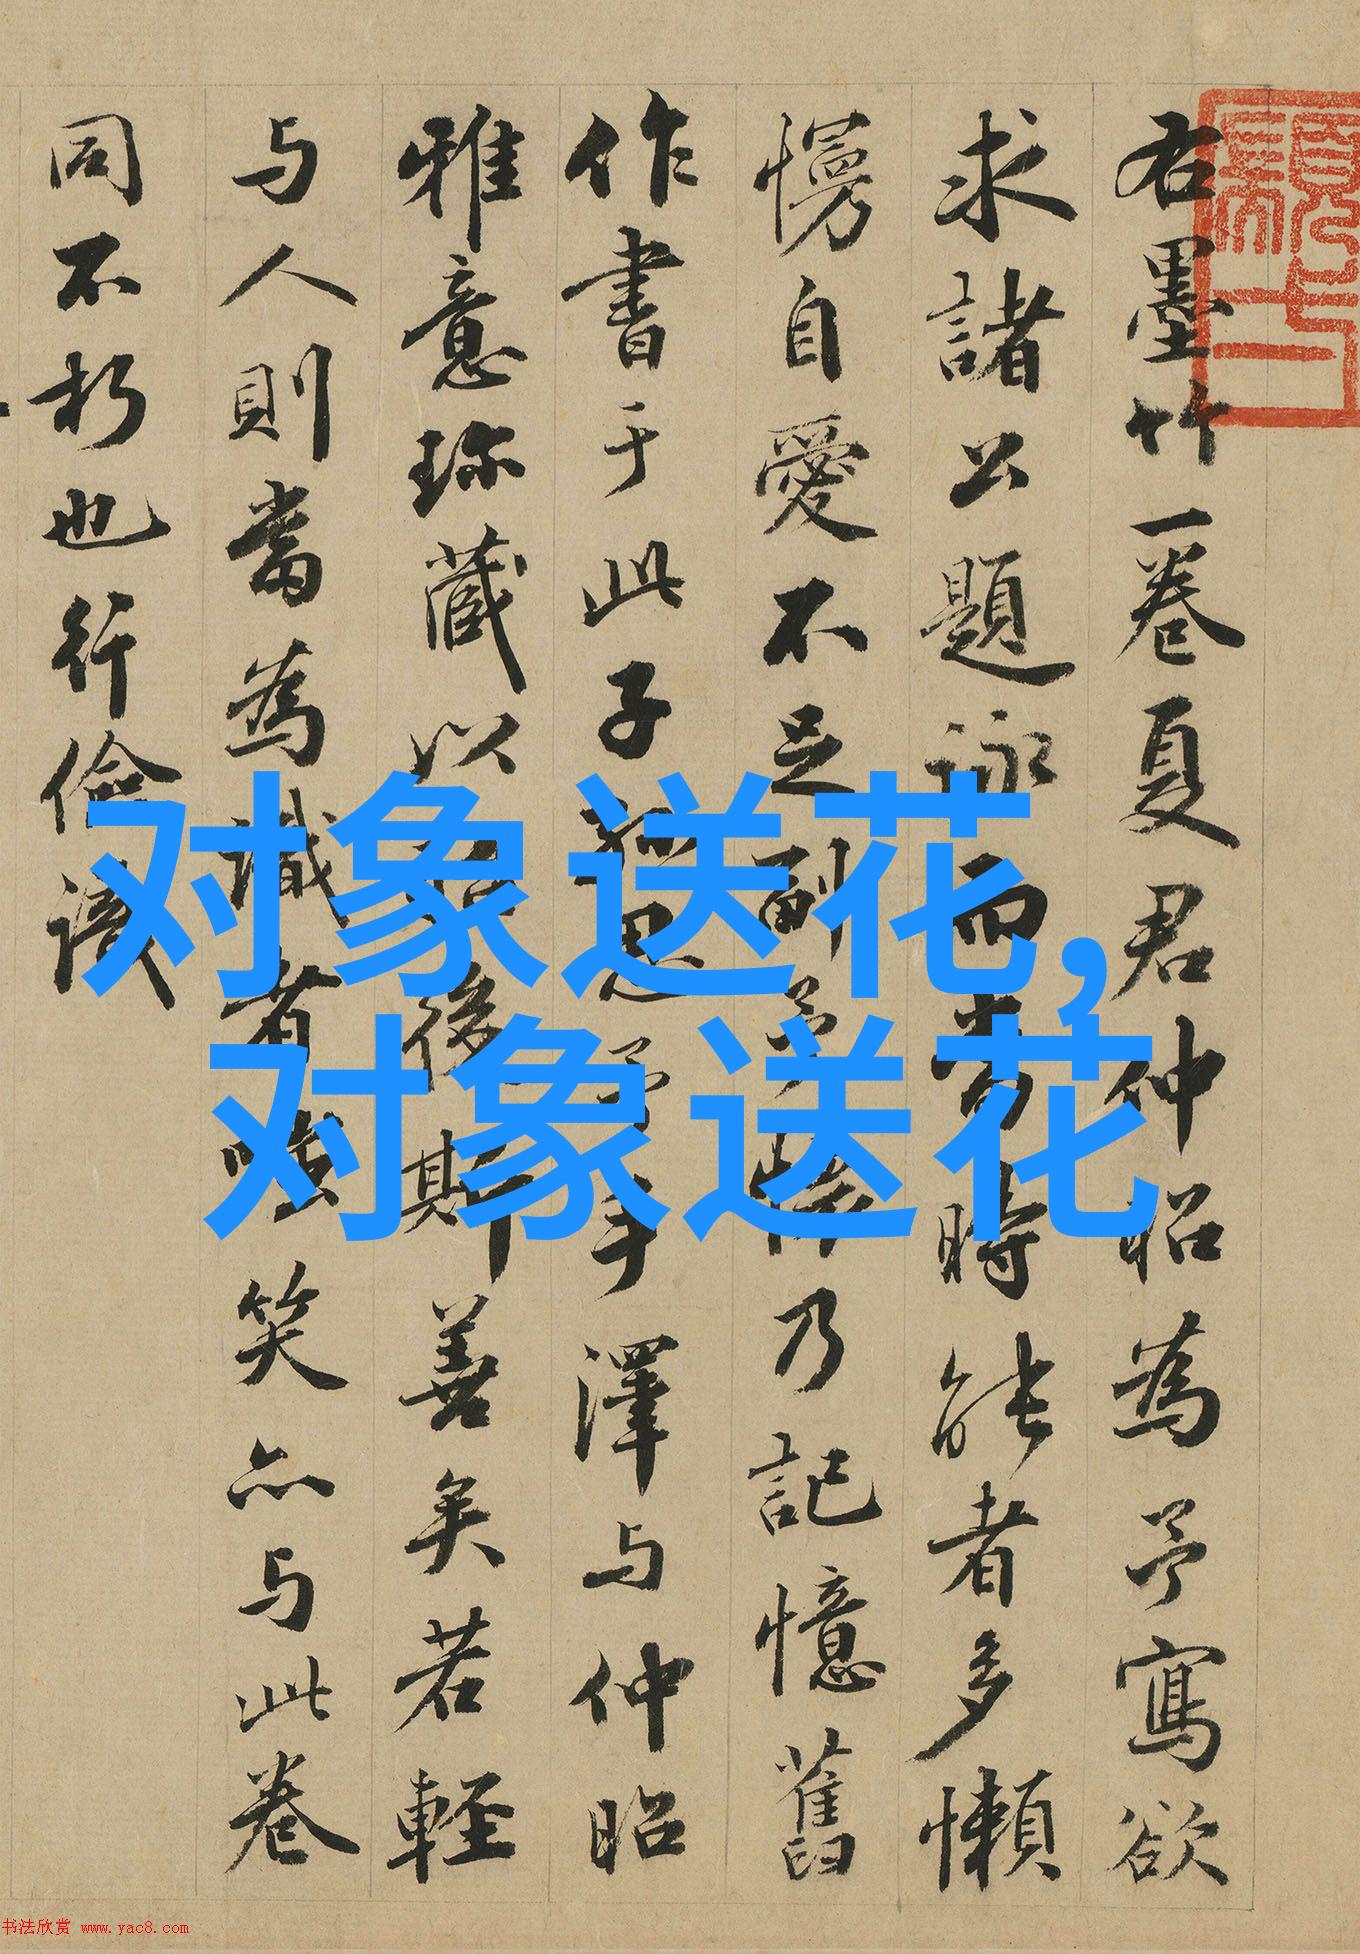 右墨竹一卷夏君仲昭為予寫欲
求諸公題詠而時能者多懶
慢自愛不足副予懷乃記憶舊
作書于此子孫思予手澤与仲昭
雅意珎藏以後斯善矣若輕
与人則當為識者嗤笑亦与此卷
同不朽也行儉
对象送花,
对象送花
书法欣赏 www.yac8.com